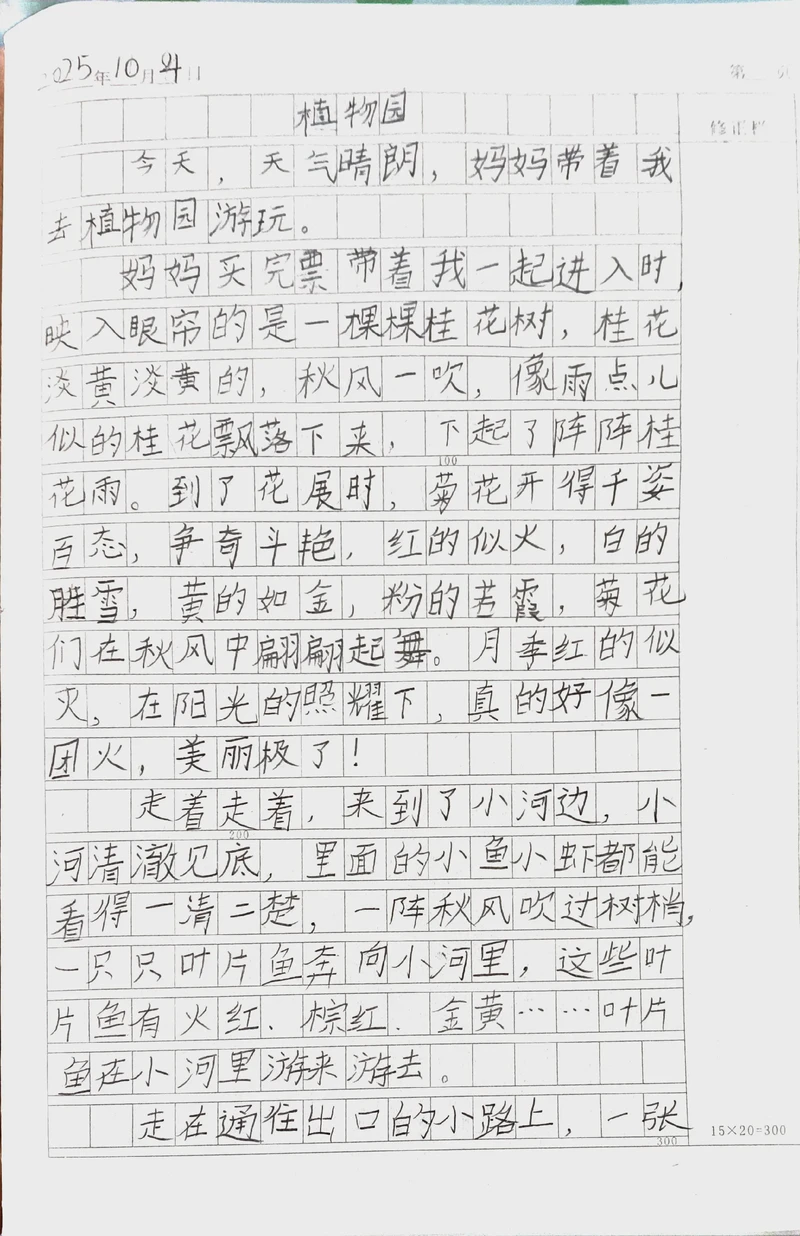 2025年10月4日
第 页
植物园
修正栏
今天，天气晴朗，妈妈带着我
去植物园游玩。
妈妈买完票带着我一起进入时，
映入眼帘的是一棵棵桂花树，桂花
淡黄淡黄的，秋风一吹，像雨点儿
似的桂花飘落下来，下起了阵阵桂
100
花雨。到了花展时，菊花开得千姿
百态，争奇斗艳，红的似火，白的
胜雪，黄的如金，粉的若霞，菊花
们在秋风中翩翩起舞。月季红的似
火，在阳光的照耀下，真的好像一
团火，美丽极了！
走着走着，来到了小河边，小
200
河清澈见底，里面的小鱼小虾都能
看得一清二楚，一阵秋风吹过树梢，
一只只叶片鱼奔向小河里，这些叶
片鱼有火红、棕红、金黄……叶片
鱼在小河里游来游去。
走在通往出口的小路上，一张
300
15×20=300